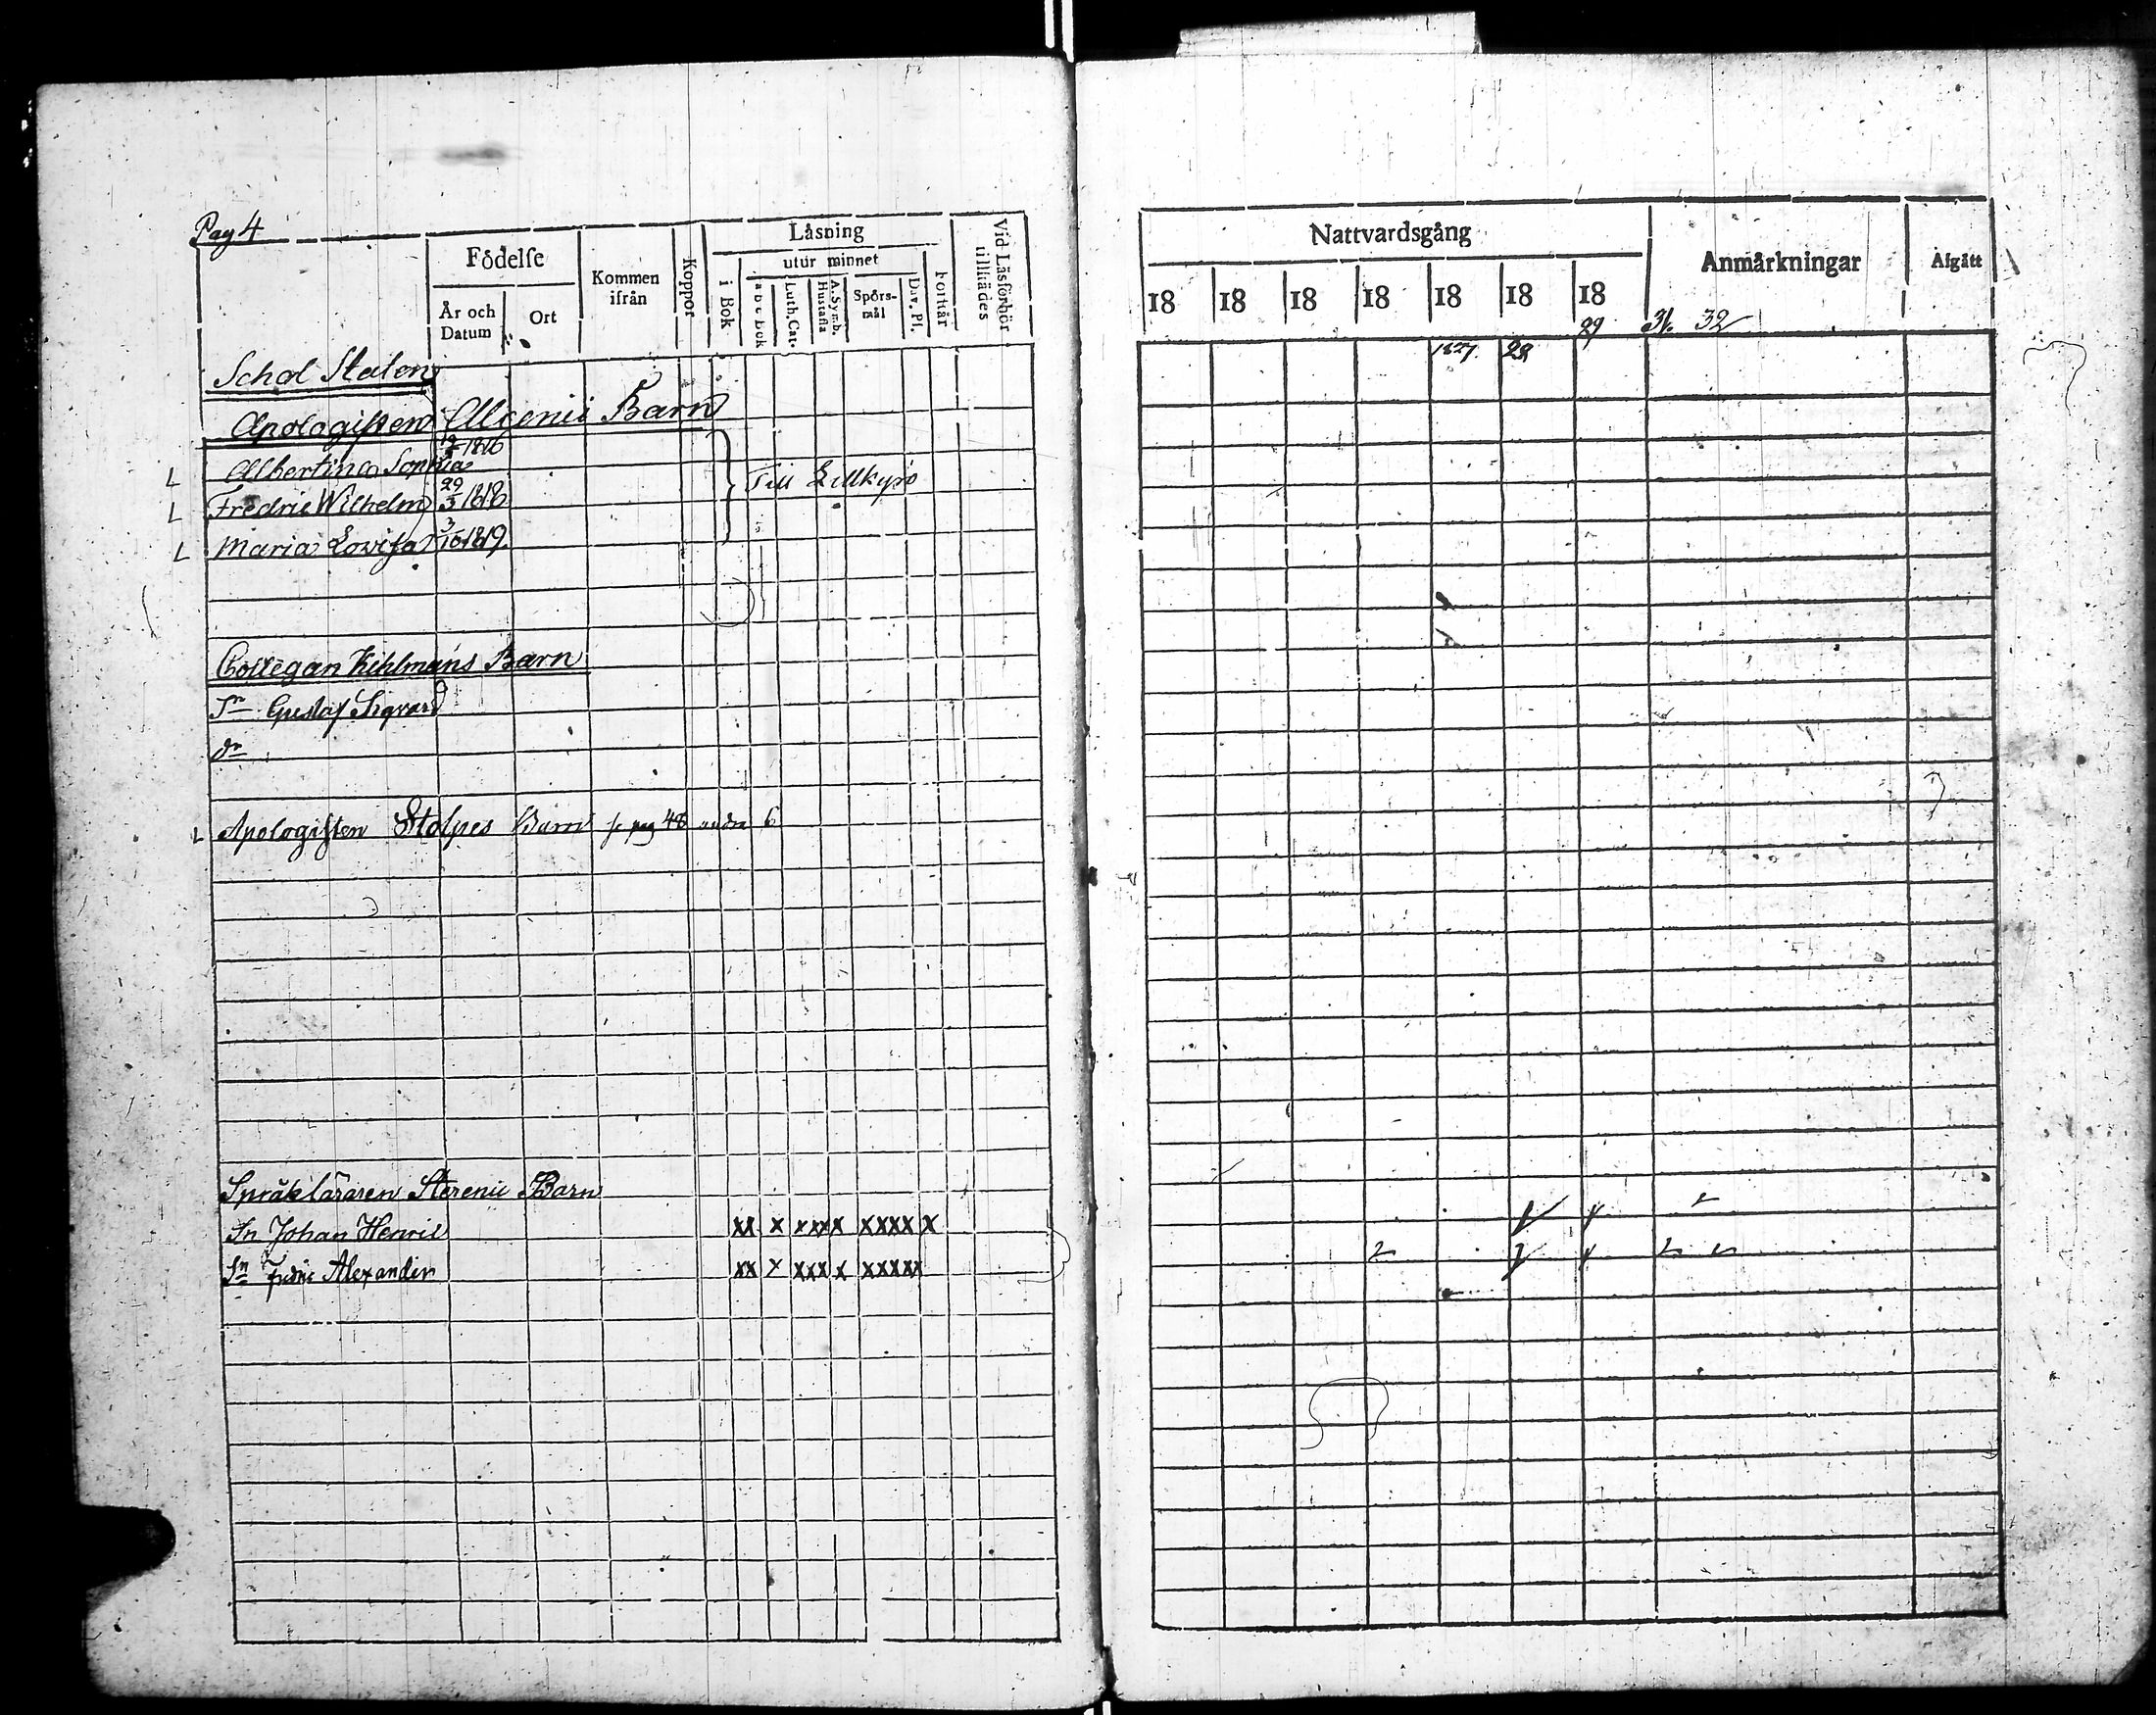 Pag 4
Födelse
År och Datum
Ort
Kommen ifrån
Koppor
Läsning
i Bok
utur minnet
a b c Bok
Luth. Cat.
Hustafla
A. Symb.
Spörsmål
Dav. Ps.
Vid Läsförhör tillstädes
Schol Staten
Apologisten Alcenii Barn
Albertina Sophia 1816
Fredric Wilhelm 29/3 1818
Maria Lovisa 3/10 1819.
Till Lillkyro
Collegan Kihlmans Barn
Sn Gustaf Sigvard
dr
Apologisten Stolpes Barn se pag 48 andra 6
Språkläraren Stenii Barn
Sn Johan Henric xx x xxxx xxxx x
Sn Fredric Alexander xx x xxx x xxxxx
Nattvardsgång
Anmärkningar
Afgått
18 18 18 18 18 18 18
1827 28 29 31. 32